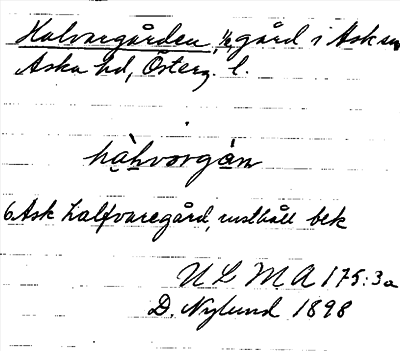 Halvargården, 1/2 gård i Ask sn
Aska hd, Österg. l.
hàl̥vorgán
6 Ask Halfvaregård, rusthåll bek
U L M A 175:3a
D. Nylund 1898